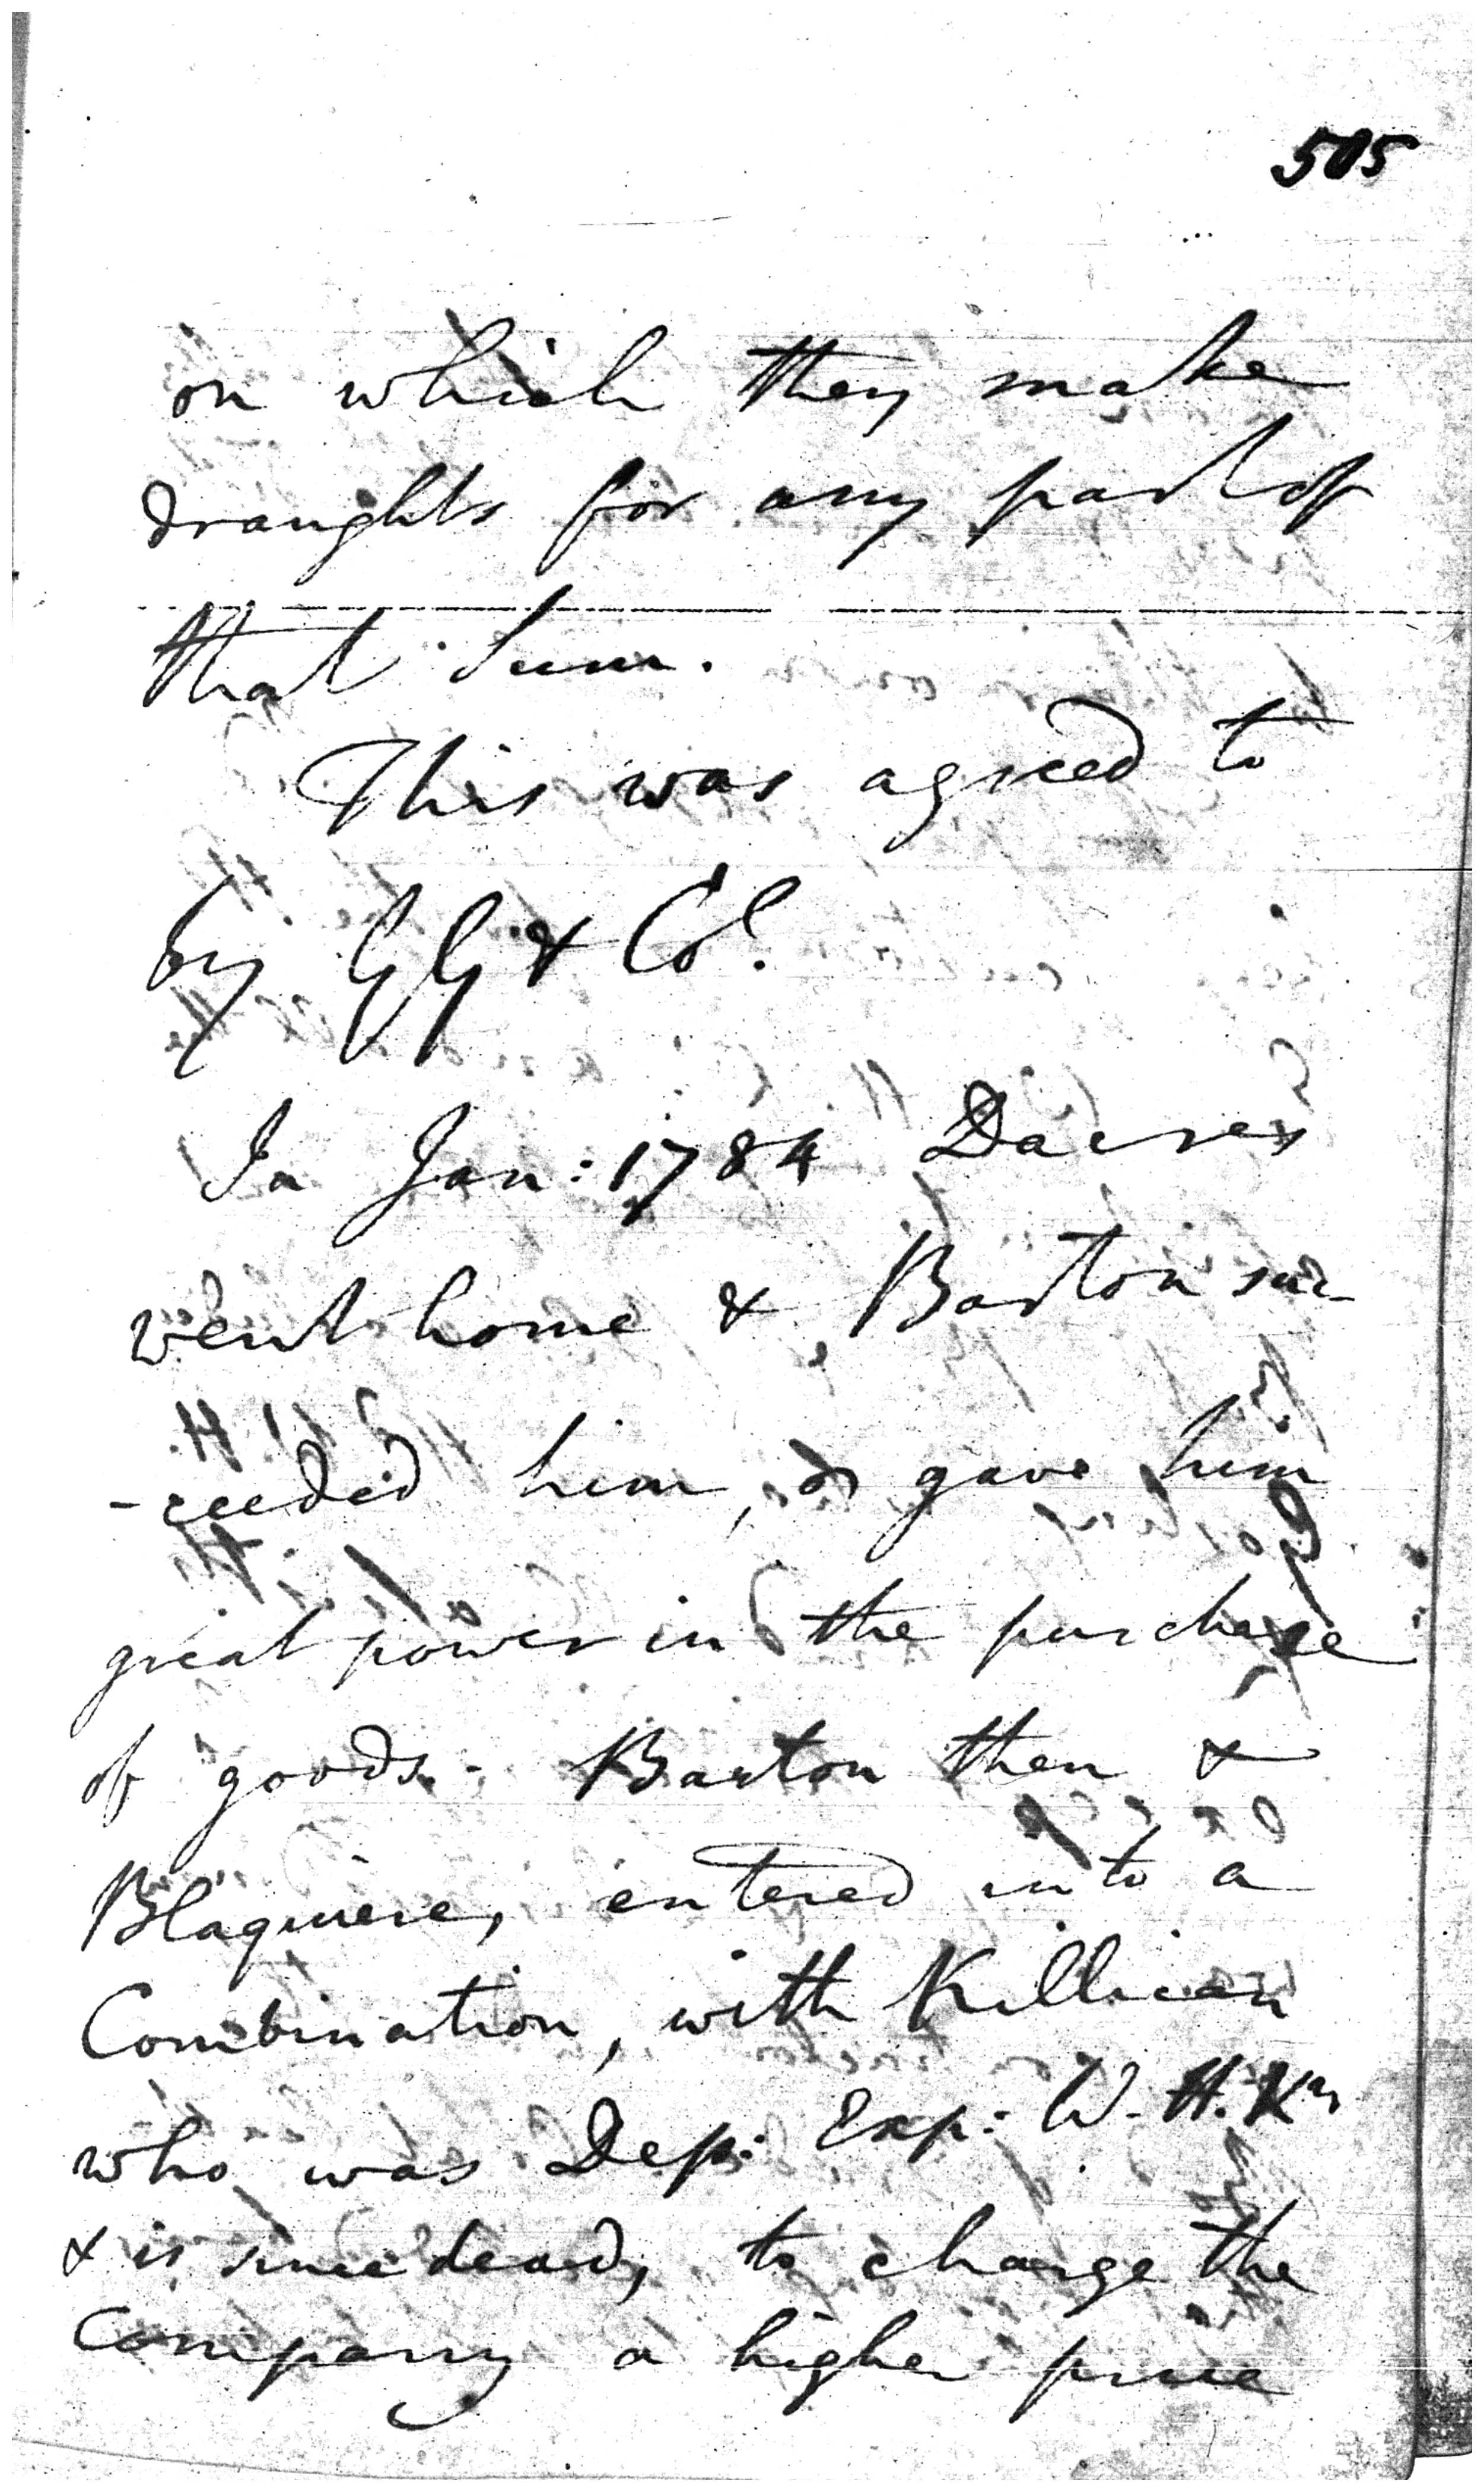 505
on which they make
draughts for any part of
that Sum.
This was agreed to
by GG & Co.
In Jan: 1784 Dacres
went home & Barton suc-
-ceeded him, & gave him
great power in the purchase
of goods. - Barton then &
Blaquiere, entered into a
Combination, with Killican
who was Dep: Exp: W. H. Kr
& is since dead, to charge the
Company a higher price